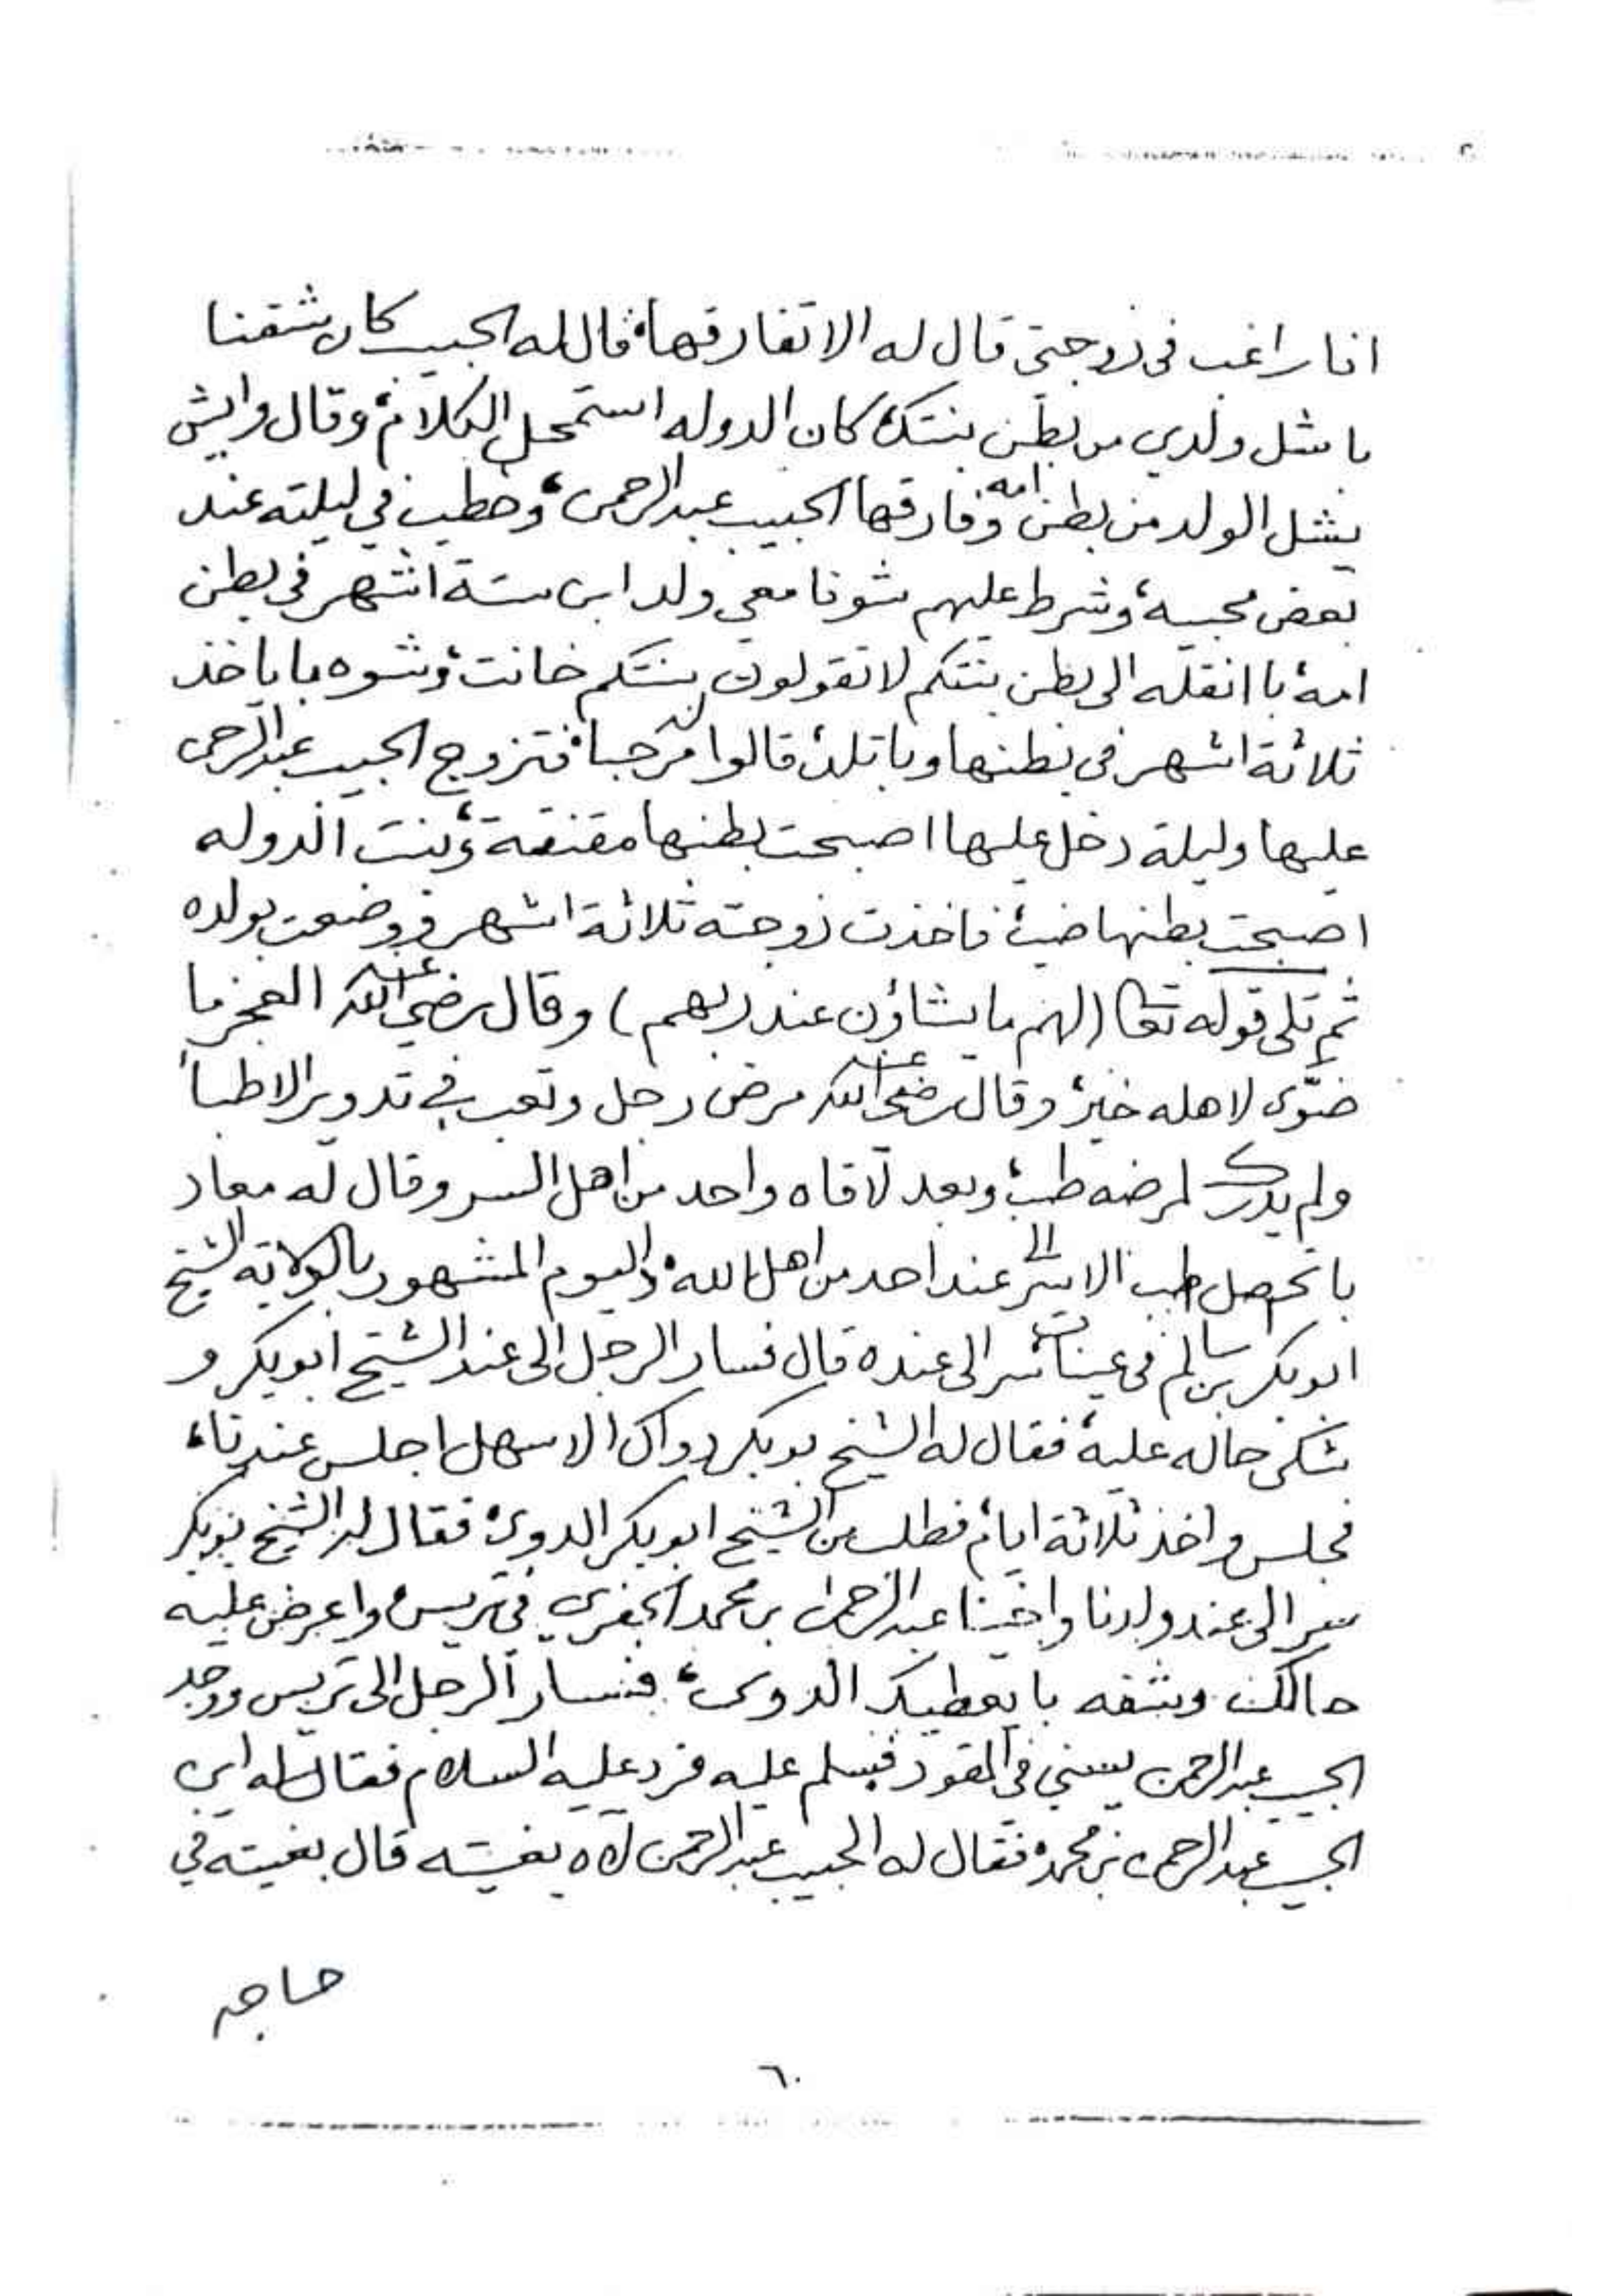 انا راغب في زوجتي قال له الا تفارقها، قال له الحبيب كان شقنا
باشل ولدي من بطن بنتك، كان الدوله استمحل الكلام، وقال وايش
يشل الولد من بطن امه وفارقها الحبيب عبدالرحمن، وخطب في ليلته عند
بعض محبيه، وشرط عليهم شوفا معي ولد ابن ستة اشهر في بطن
امه، با انقله الى بطن بنتكم لا تقولون بنتكم خانت، وشوه باياخذ
ثلاثة اشهر في بطنها وباتلده، قالوا مرحبا، فتزوج الحبيب عبدالرحمن
عليها وليلة دخل عليها اصبحت بطنها مقنقة، وبنت الدوله
اصبحت بطنها ضيه، فاخذت زوجته ثلاثة اشهر ووضعت بولده
ثم تلى قوله تعا (لهم ما يشاؤن عند ربهم) وقال رضي الله عنه العجز ما
ضوّى لاهله خير، وقال رضي الله عنه مرض رجل وتعب في تدوير الاطبا
ولم يدرك لمرضه طب، وبعد لاقاه واحد من اهل السر وقال له معاد
با تحصل طب الا سر الى عند احد من اهل الله، واليوم المشهور بالولاية الشيخ
ابوبكر بن سالم في عينات سر الى عنده قال فسار الرجل الى عند الشيخ ابوبكر و
شكى حاله عليه، فقال له الشيخ بوبكر دواك الا سهل اجلس عندنا،
فجلس واخذ ثلاثة ايام، فطلب من الشيخ ابوبكر الدوى، فقال له الشيخ بوبكر
سير الى عند ولدنا واخينا عبدالرحمن بن محمد الجفري في تريس، واعرض عليه
حالك وشفه با يعطيك الدوى، فسار الرجل الى تريس ووجد
الحبيب عبدالرحمن يسني في المقود فسلم عليه فرد عليه السلام فقال له اين
الحبيب عبدالرحمن بن محمد، فقال له الحبيب عبدالرحمن لاه بغيته قال بغيته في
حاجه
٦٠